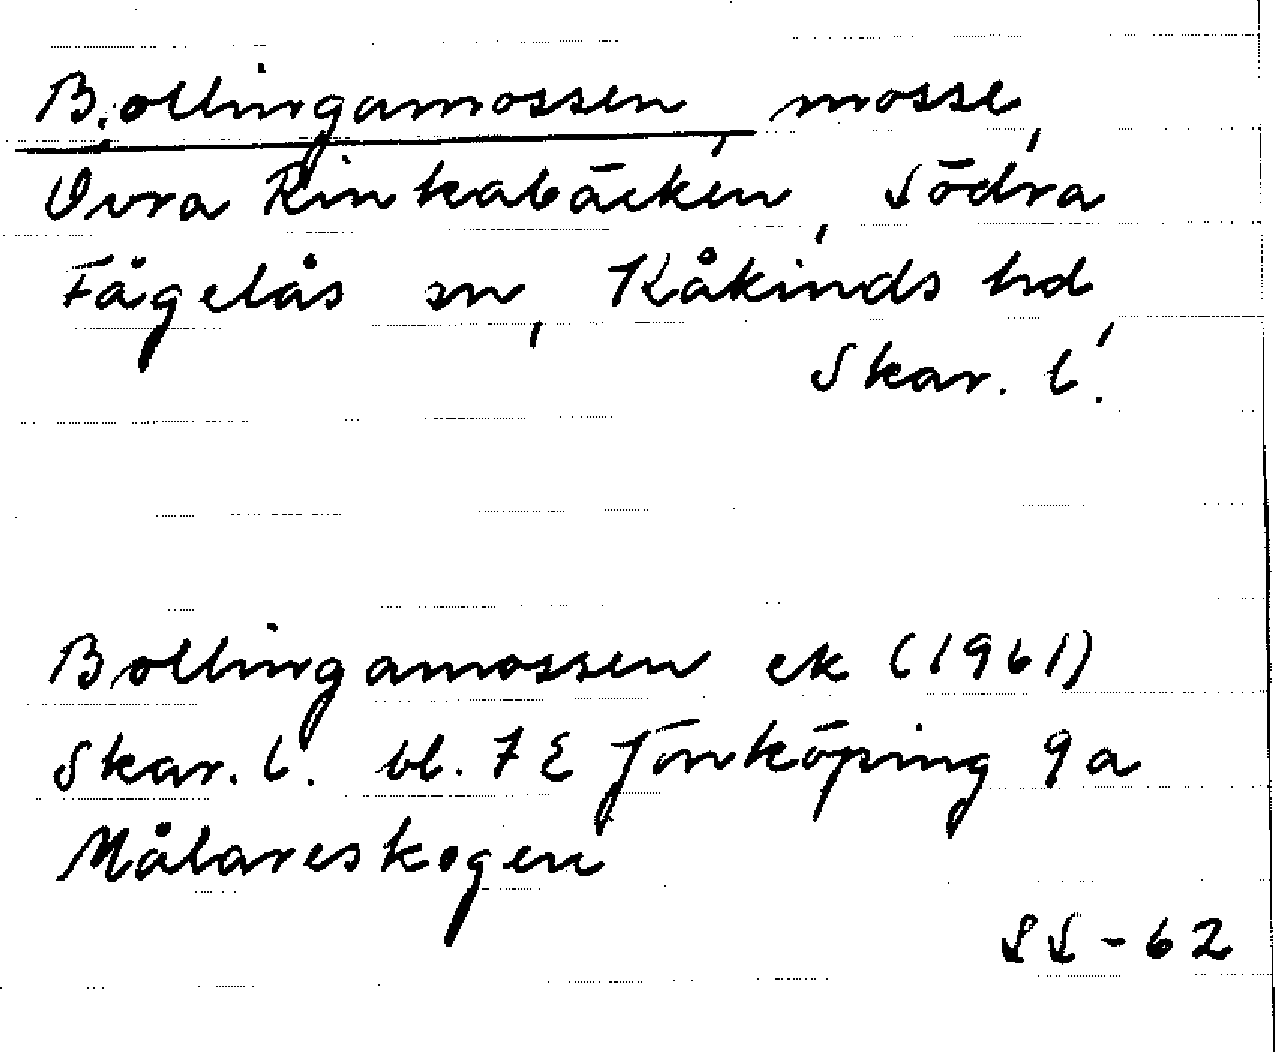 Bollingamossen, mosse,
Övra Rinkabäcken, Södra
Fågelås sn, Kåkinds hd,
Skar. l.
Bollingamossen ek (1961)
Skar. l. bl. 7 E Jönköping 9a
Målareskogen
SS-62